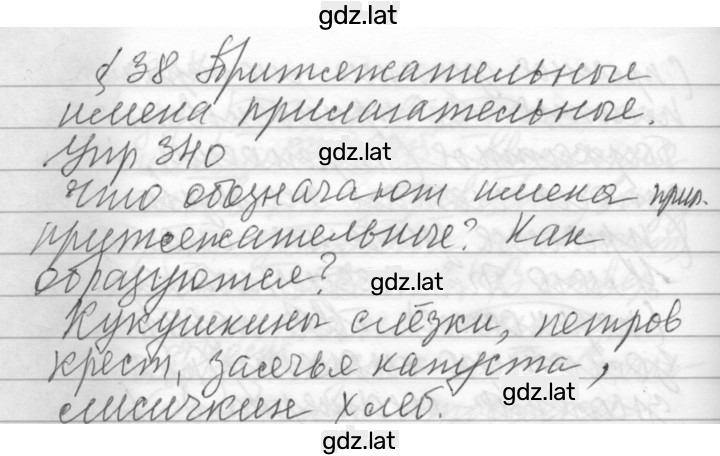 gdz.lat
§ 38 Притяжательные
имена прилагательные.
Упр 340
gdz.lat
Что обозначают имена прил.
притяжательные? Как
образуются?
gdz.lat
Кукушкины слёзки, петров
крест, заячья капуста,
gdz.lat
лисичкин хлеб.
gdz.lat